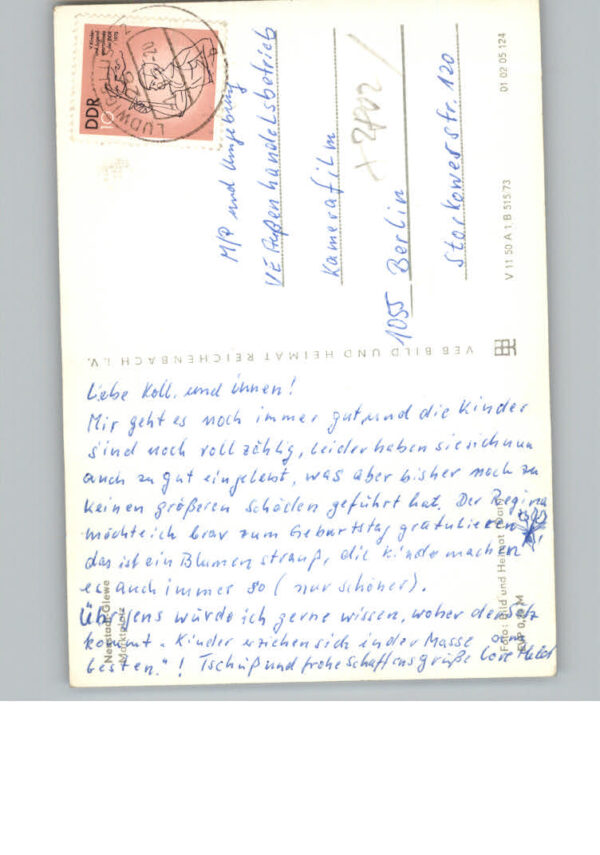 Liebe Koll. und innen!
Mir geht es noch immer gut und die Kinder
sind noch vollzählig, leider haben sie sich nun
auch zu gut eingelebt, was aber bisher noch zu
keinen größeren Schäden geführt hat. Der Regina
möchte ich brav zum Geburtstag gratulieren
das ist ein Blumenstrauß, die Kinder machen
es auch immer so (nur schöner).
Übrigens würde ich gerne wissen, woher der Satz
kommt „Kinder erziehen sich in der Masse am
besten."! Tschüß und frohe Schaffensgrüße
M/P und Umgebung
VE Außenhandelsbetrieb
Kamerafilm
1055 Berlin
Storkower str. 120
DDR
10
LUDWIGSLU
VEB BILD UND HEIMAT REICHENBACH i. V.
Neustadt-Glewe
Marktplatz
Foto: Bild und Heimat
V 11 50 A 1 B 515/73
01 02 05 124